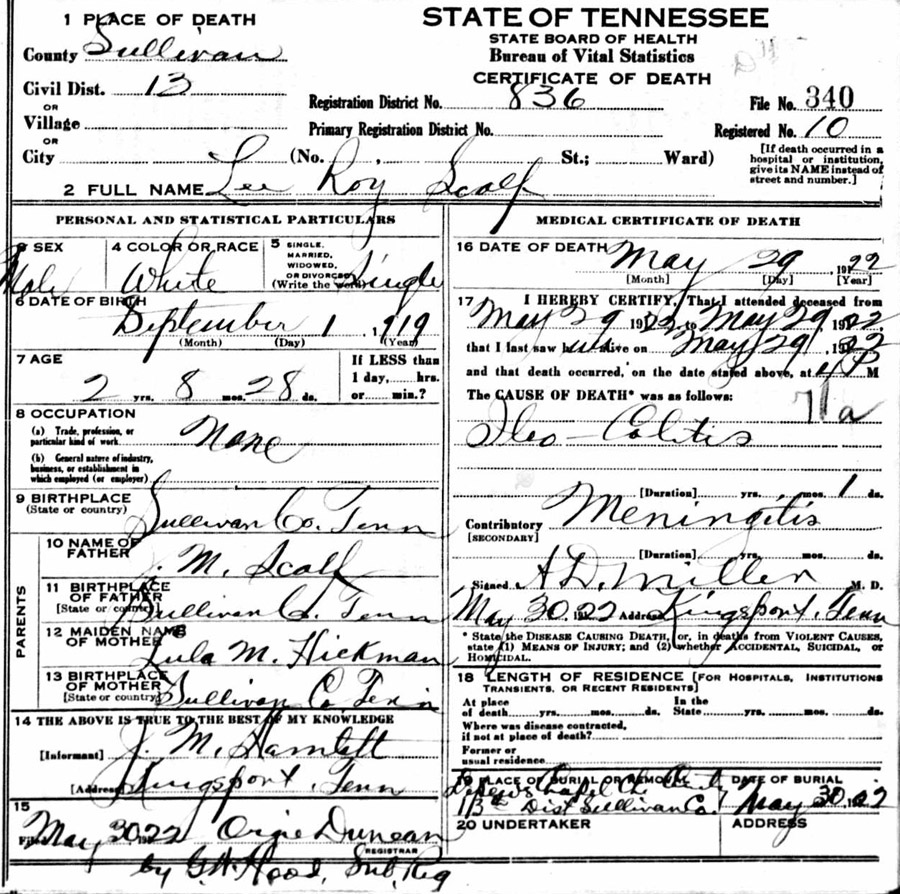 1 PLACE OF DEATH
County Sullivan
Civil Dist. 13
OR
Village
OR
City
(No. St.; Ward)
STATE OF TENNESSEE
STATE BOARD OF HEALTH
Bureau of Vital Statistics
CERTIFICATE OF DEATH
Registration District No. 836
File No. 340
Primary Registration District No.
Registered No. 10
[If death occurred in a
hospital or institution,
give its NAME instead of
street and number.]
2 FULL NAME Lee Roy Scalf
PERSONAL AND STATISTICAL PARTICULARS
3 SEX
Male
4 COLOR OR RACE
White
5 SINGLE,
MARRIED,
WIDOWED,
OR DIVORCED
(Write the word) Single
6 DATE OF BIRTH
September 1, 1919
(Month) (Day) (Year)
7 AGE
2 yrs. 8 mos. 28 ds.
If LESS than
1 day, hrs.
or min.?
8 OCCUPATION
(a) Trade, profession, or
particular kind of work None
(b) General nature of industry,
business, or establishment in
which employed (or employer)
9 BIRTHPLACE
(State or country)
Sullivan Co. Tenn
PARENTS
10 NAME OF
FATHER
J. M. Scalf
11 BIRTHPLACE
OF FATHER
[State or country]
Sullivan Co. Tenn
12 MAIDEN NAME
OF MOTHER
Lula M. Hickman
13 BIRTHPLACE
OF MOTHER
[State or country]
Sullivan Co. Tenn
14 THE ABOVE IS TRUE TO THE BEST OF MY KNOWLEDGE
[Informant] J. M. Hamlett
[Address] Kingsport, Tenn
15
Filed May 30 1922 Orgie Duncan
REGISTRAR
by G. H. Hood, Sub. Reg
MEDICAL CERTIFICATE OF DEATH
16 DATE OF DEATH May 29, 1922
[Month] [Day] [Year]
17 I HEREBY CERTIFY, That I attended deceased from
May 29 1922 to May 29, 1922
that I last saw him alive on May 29, 1922
and that death occurred, on the date stated above, at 4 P M
The CAUSE OF DEATH* was as follows:
71a
Ileo-Colitis
[Duration] yrs. mos. 1 ds.
Contributory Meningitis
[SECONDARY]
[Duration] yrs. mos. ds.
Signed A. D. Miller M. D.
May 30, 22 Address Kingsport, Tenn
* State the DISEASE CAUSING DEATH, or, in deaths from VIOLENT CAUSES,
state (1) MEANS OF INJURY; and (2) whether ACCIDENTAL, SUICIDAL, or
HOMICIDAL.
18 LENGTH OF RESIDENCE [FOR HOSPITALS, INSTITUTIONS
TRANSIENTS, OR RECENT RESIDENTS]
At place
of death yrs. mos. ds.
In the
State yrs. mos. ds.
Where was disease contracted,
if not at place of death?
Former or
usual residence
19 PLACE OF BURIAL OR REMOVAL
Chapel
13th Dist Sullivan Co.
DATE OF BURIAL
May 30, 1922
20 UNDERTAKER
ADDRESS